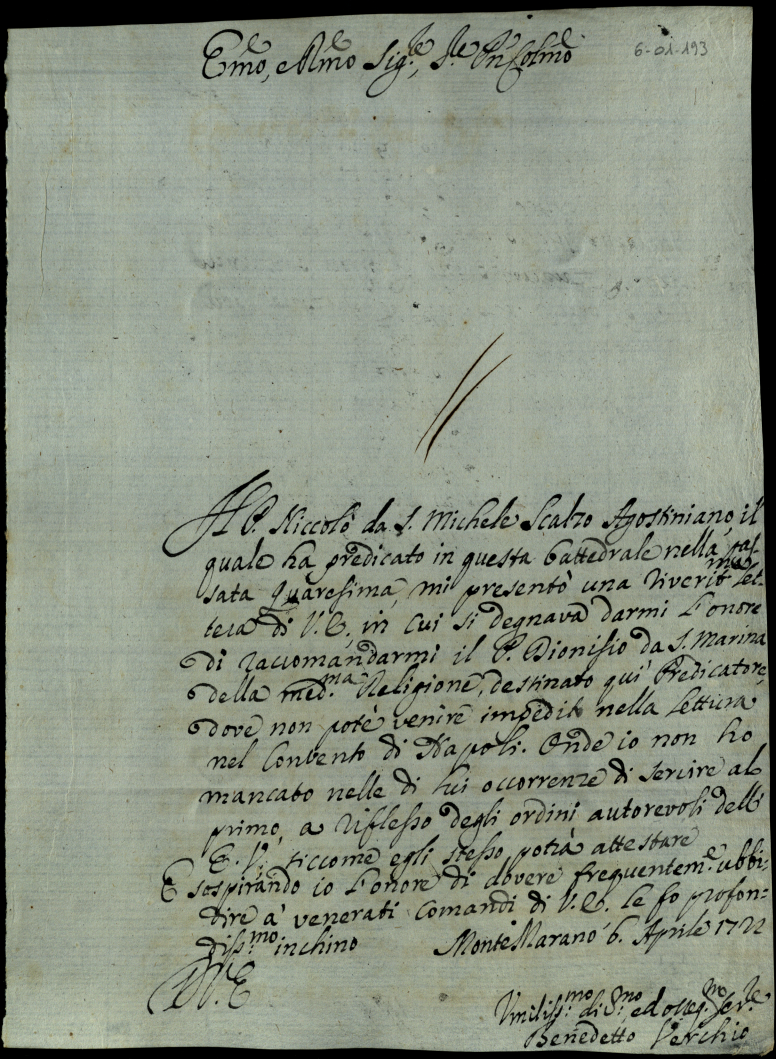 Em.o, e Rmo Sig.re, S.re Prn Colmo
6-01-193
Il P. Niccolò da S. Michele Scalzo Agostiniano, il
quale ha predicato in questa Cattedrale nella pas-
sata Quaresima, mi presentò una riveritma Let-
tera di V.E., in cui si degnava darmi l'onore
di raccomandarmi il P. Dionisio da S. Marina
della med.ma Religione, destinato qui Predicatore,
dove non potè venire impedito nella Lettura
nel Convento di Napoli. Onde io non ho
mancato nelle di lui occorrenze di servire al
primo, a riflesso degli ordini autorevoli dell'
E.V., siccome egli stesso potrà attestare
E sospirando io l'onore di dovere frequentem.e ubbi=
dire a' venerati Comandi di V.E. le fo profon=
diss.mo inchino MonteMarano 6. Aprile 1722
D.V.E
Umiliss.mo di.Vmo ed osseq.mo Ser.re
Benedetto Verchio